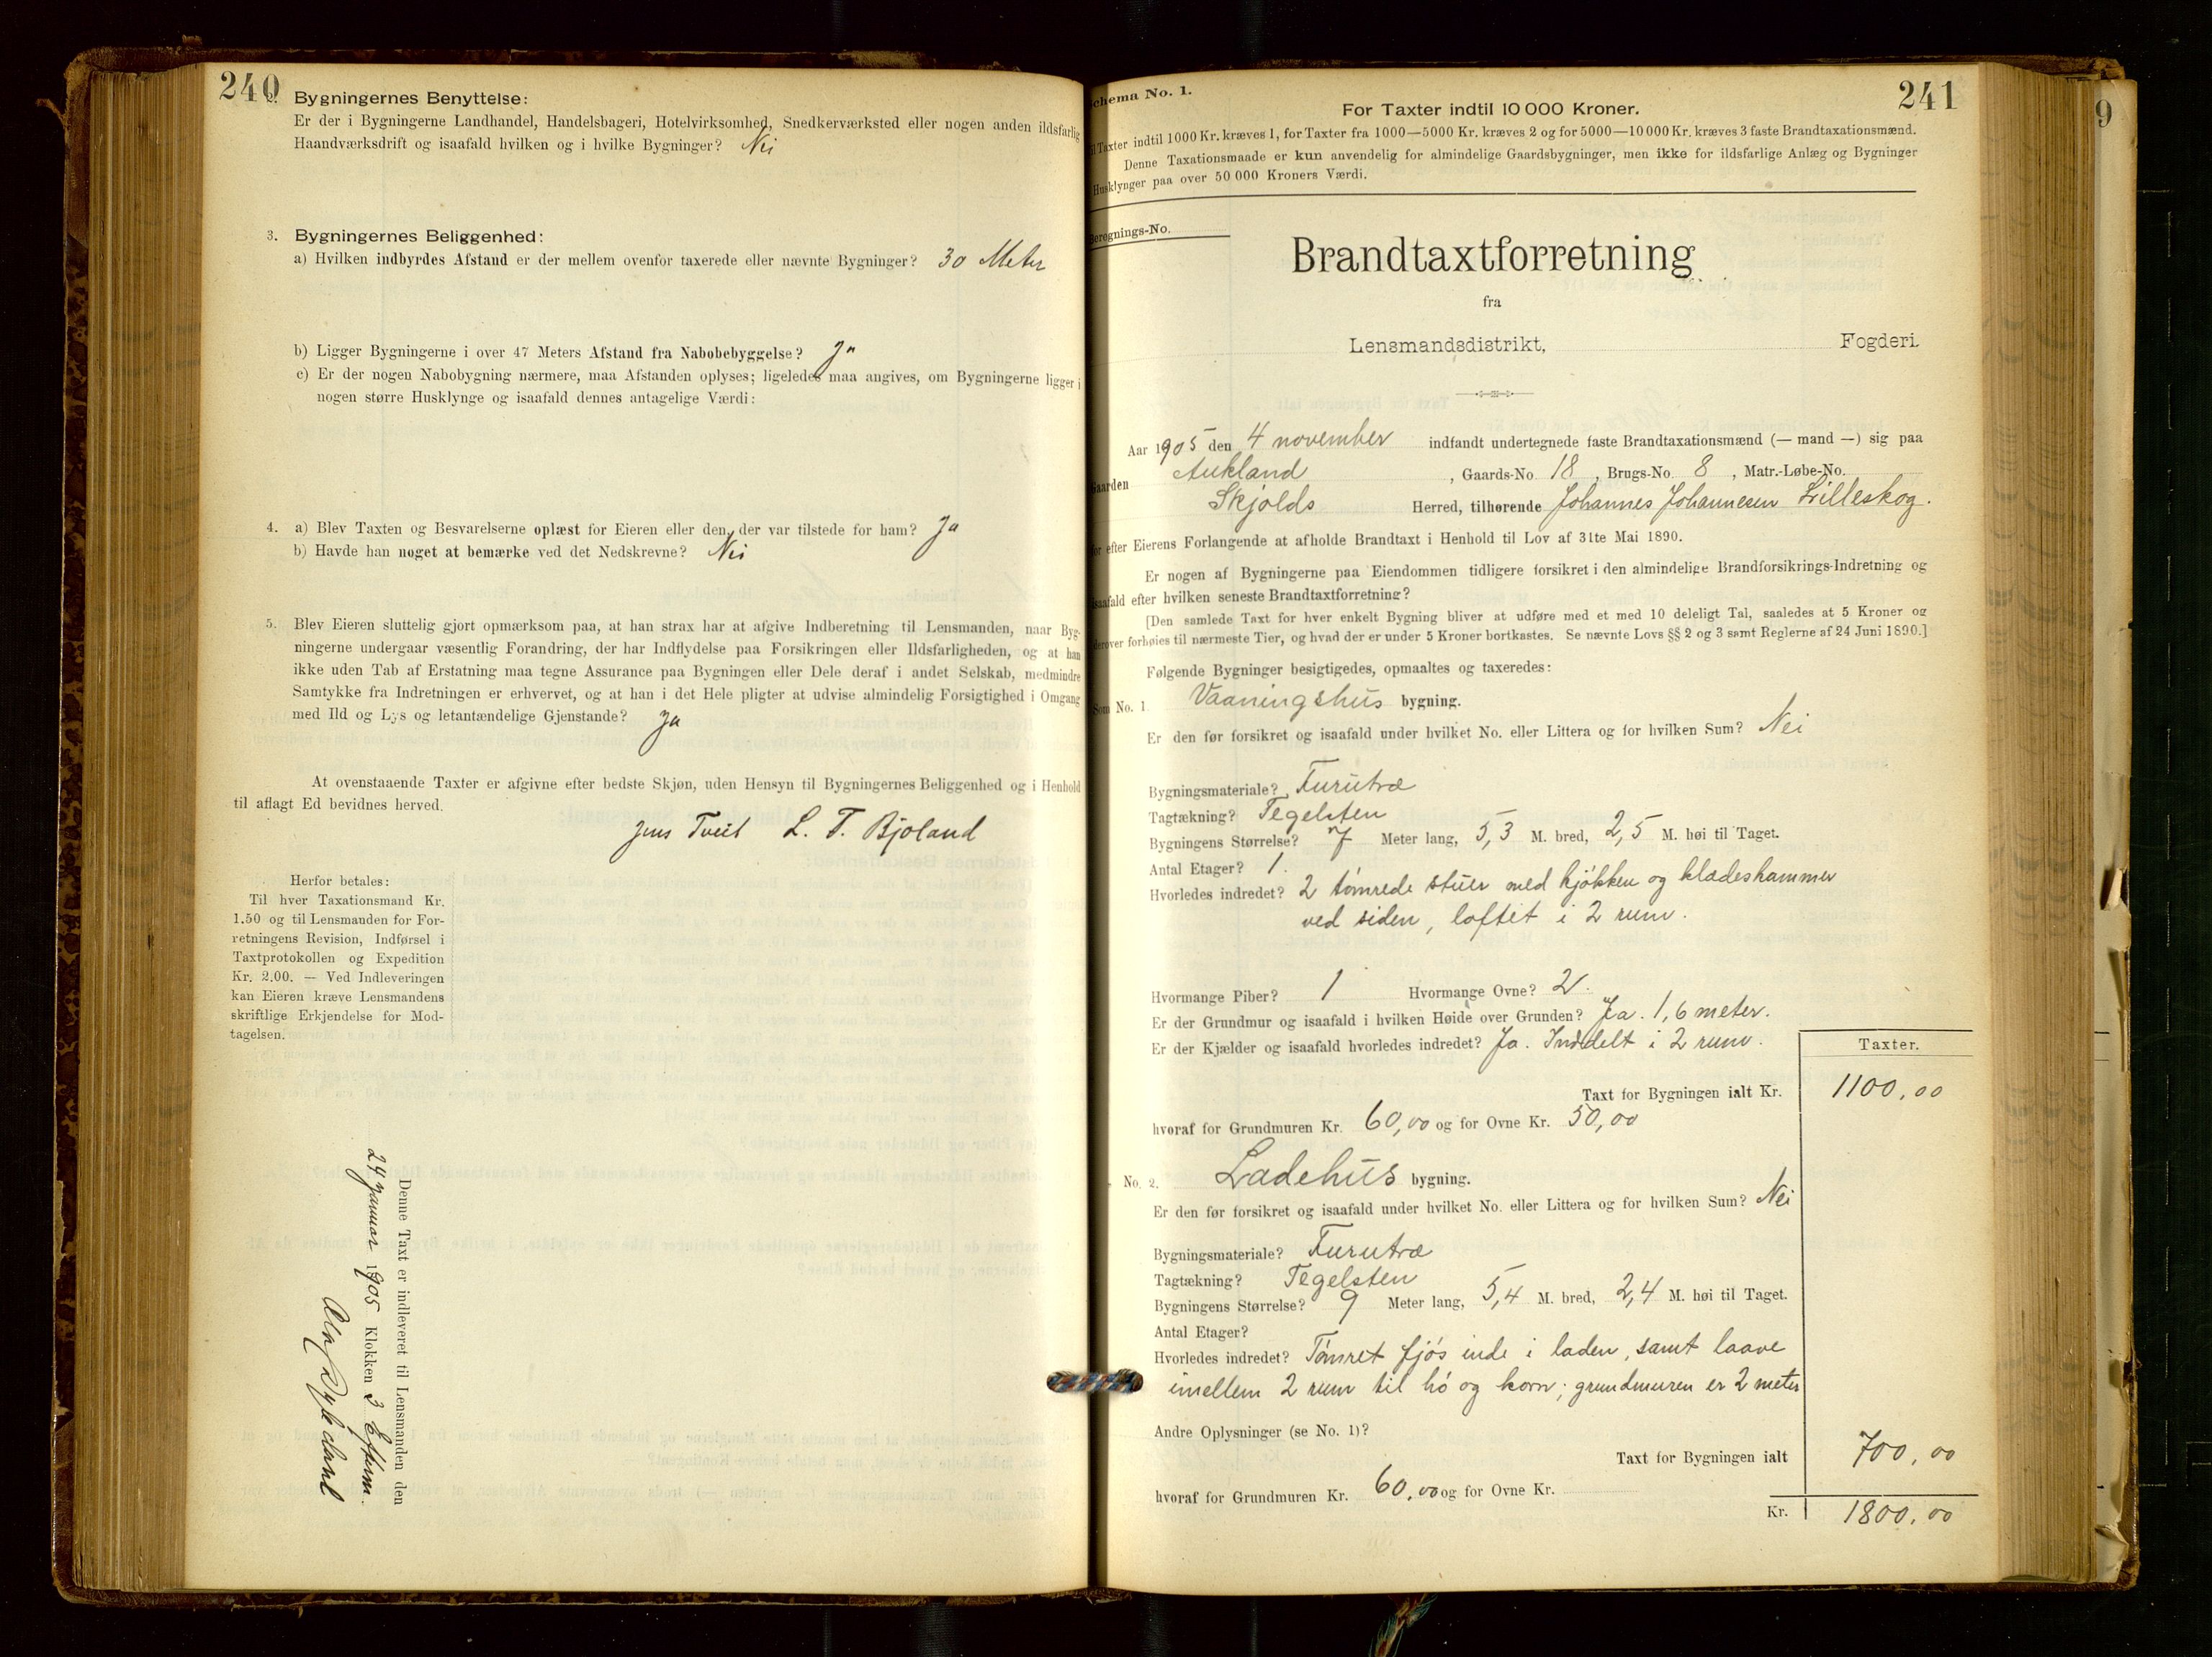 240
2. Bygningernes Benyttelse:
Er der i Bygningerne Landhandel, Handelsbageri, Hotelvirksomhed, Snedkerværksted eller nogen anden ildsfarlig
Haandværksdrift og isaafald hvilken og i hvilke Bygninger? Nei
3. Bygningernes Beliggenhed:
a) Hvilken indbyrdes Afstand er der mellem ovenfor taxerede eller nævnte Bygninger? 30 Meter
b) Ligger Bygningerne i over 47 Meters Afstand fra Nabobebyggelse? Ja
c) Er der nogen Nabobygning nærmere, maa Afstanden oplyses; ligeledes maa angives, om Bygningerne ligger i
nogen større Husklynge og isaafald dennes antagelige Værdi:
4. a) Blev Taxten og Besvarelserne oplæst for Eieren eller den, der var tilstede for ham? Ja
b) Havde han noget at bemærke ved det Nedskrevne? Nei
5. Blev Eieren sluttelig gjort opmærksom paa, at han strax har at afgive Indberetning til Lensmanden, naar Byg-
ningerne undergaar væsentlig Forandring, der har Indflydelse paa Forsikringen eller Ildsfarligheden, og at han
ikke uden Tab af Erstatning maa tegne Assurance paa Bygningen eller Dele deraf i andet Selskab, medmindre
Samtykke fra Indretningen er erhvervet, og at han i det Hele pligter at udvise almindelig Forsigtighed i Omgang
med Ild og Lys og letantændelige Gjenstande? Ja
At ovenstaaende Taxter er afgivne efter bedste Skjøn, uden Hensyn til Bygningernes Beliggenhed og i Henhold
til aflagt Ed bevidnes herved.
Jens Tveit L. T. Bjoland
Herfor betales:
Til hver Taxationsmand Kr.
1.50 og til Lensmanden for For-
retningens Revision, Indførsel i
Taxtprotokollen og Expedition
Kr. 2.00. — Ved Indleveringen
kan Eieren kræve Lensmandens
skriftlige Erkjendelse for Mod-
tagelsen.
Denne Taxt er indleveret til Lensmanden den
24 januar 1905 Klokken 3 Efterm.
241
Schema No. 1.
For Taxter indtil 10 000 Kroner.
Til Taxter indtil 1000 Kr. kræves 1, for Taxter fra 1000—5000 Kr. kræves 2 og for 5000—10 000 Kr. kræves 3 faste Brandtaxationsmænd.
Denne Taxationsmaade er kun anvendelig for almindelige Gaardsbygninger, men ikke for ildsfarlige Anlæg og Bygninger
Husklynger paa over 50 000 Kroners Værdi.
Beregnings-No.
Brandtaxtforretning
fra
Lensmandsdistrikt, Fogderi.
Aar 1905 den 4 november indfandt undertegnede faste Brandtaxationsmænd (— mand —) sig paa
Gaarden Aukland, Gaards-No. 18, Brugs-No. 8, Matr.-Løbe-No.
Skjolds Herred, tilhørende Johannes Johannesen Lilleskog.
for efter Eierens Forlangende at afholde Brandtaxt i Henhold til Lov af 31te Mai 1890.
Er nogen af Bygningerne paa Eiendommen tidligere forsikret i den almindelige Brandforsikrings-Indretning og
isaafald efter hvilken seneste Brandtaxtforretning?
[Den samlede Taxt for hver enkelt Bygning bliver at udføre med et med 10 deleligt Tal, saaledes at 5 Kroner og
derover forhøies til nærmeste Tier, og hvad der er under 5 Kroner bortkastes. Se nævnte Lovs §§ 2 og 3 samt Reglerne af 24 Juni 1890.]
Følgende Bygninger besigtigedes, opmaaltes og taxeredes:
Som No. 1 Vaaningshus bygning.
Er den før forsikret og isaafald under hvilket No. eller Littera og for hvilken Sum? Nei
Bygningsmateriale? Furutræ
Tagtækning? Tegelsten
Bygningens Størrelse? 7 Meter lang, 5,3 M. bred, 2,5 M. høi til Taget.
Antal Etager? 1.
Hvorledes indredet? 2 tømrede stuer med kjøkken og klædeskammer
ved siden, loftet i 2 rum.
Hvormange Piber? 1 Hvormange Ovne? 2.
Er der Grundmur og isaafald i hvilken Høide over Grunden? Ja. 1,6 meter.
Er der Kjælder og isaafald hvorledes indredet? Ja. Inddelt i 2 rum.
Taxter.
Taxt for Bygningen ialt Kr. 1100,00
hvoraf for Grundmuren Kr. 60,00 og for Ovne Kr. 50,00
No. 2. Ladehus bygning.
Er den før forsikret og isaafald under hvilket No. eller Littera og for hvilken Sum? Nei
Bygningsmateriale? Furutræ
Tagtækning? Tegelsten
Bygningens Størrelse? 9 Meter lang, 5,4 M. bred, 2,4 M. høi til Taget.
Antal Etager?
Hvorledes indredet? Tømret fjøs inde i laden, samt laave
imellem 2 rum til hø og korn; grundmuren er 2 meter
Andre Oplysninger (se No. 1)?
Taxt for Bygningen ialt 700,00
hvoraf for Grundmuren Kr. 60,00 og for Ovne Kr.
Kr. 1800,00
9